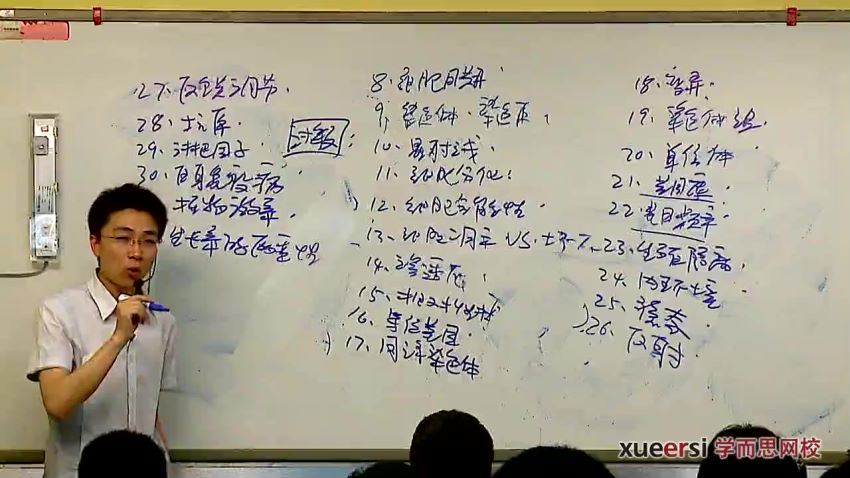 27、反馈调节
28、抗原
29、淋巴因子
30、自身免疫病
植物激素
生长素的两重性
8、细胞周期
9、染色体、染色质
10、
11、细胞分化
12、细胞全能性
13、细胞凋亡 VS 坏死
14、渗透压
15、
16、等位基因
17、同源染色体
18、变异
19、染色体组
20、单倍体
21、基因库
22、基因频率
23、生殖隔离
24、内环境
25、稳态
26、反射
xueersi 学而思网校